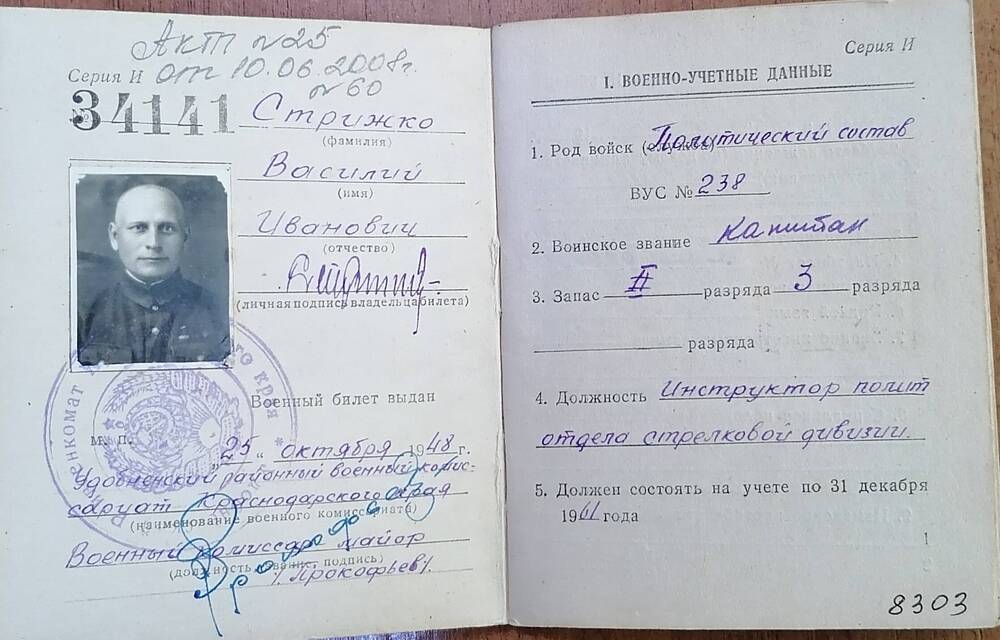 Акт №25
Серия И от 10.06.2008г.
№60
№ 34141
Стрижко
(фамилия)
Василий
(имя)
Иванович
(отчество)
(личная подпись владельца билета)
Военный билет выдан
М. П.
„25“ октября 1948 г.
Удобненский районный военный комис-
сариат Краснодарского края
(наименование военного комиссариата)
Военный комиссар майор
(должность, звание, подпись)
/Прокофьев/.
Серия И
I. ВОЕННО-УЧЕТНЫЕ ДАННЫЕ
1. Род войск (службы) Политический состав
ВУС № 238
2. Воинское звание капитан
3. Запас II разряда 3 разряда
разряда
4. Должность Инструктор полит
отдела стрелковой дивизии.
5. Должен состоять на учете по 31 декабря
1961 года
1
8303